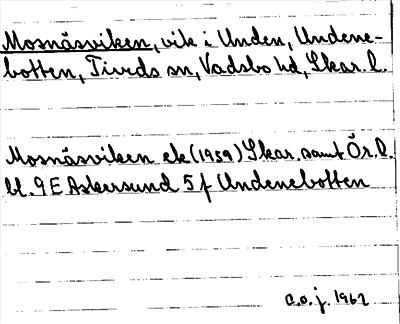 Mosnäsviken, vik i Unden, Undene-
botten, Tiveds sn, Vadsbo hd, Skar. l.
Mosnäsviken ek (1959) Skar. samt Ör. l.
bl. 9 E Askersund 5 f Undenebotten
a.o.j. 1962